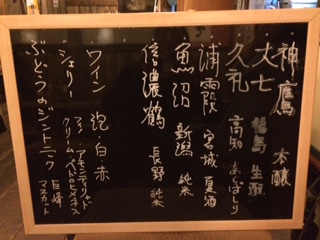 神鷹 本醸
大七 福島 生酛
久礼 高知 あらばしり
浦霞 宮城 夏酒
魚沼 新潟 純米
信濃鶴 長野 純米
ワイン 泡・白・赤
シェリー フィノ・アモンティリャード
クリーム・ペドロヒメネス
ぶどうのジントニック 巨峰
マスカット